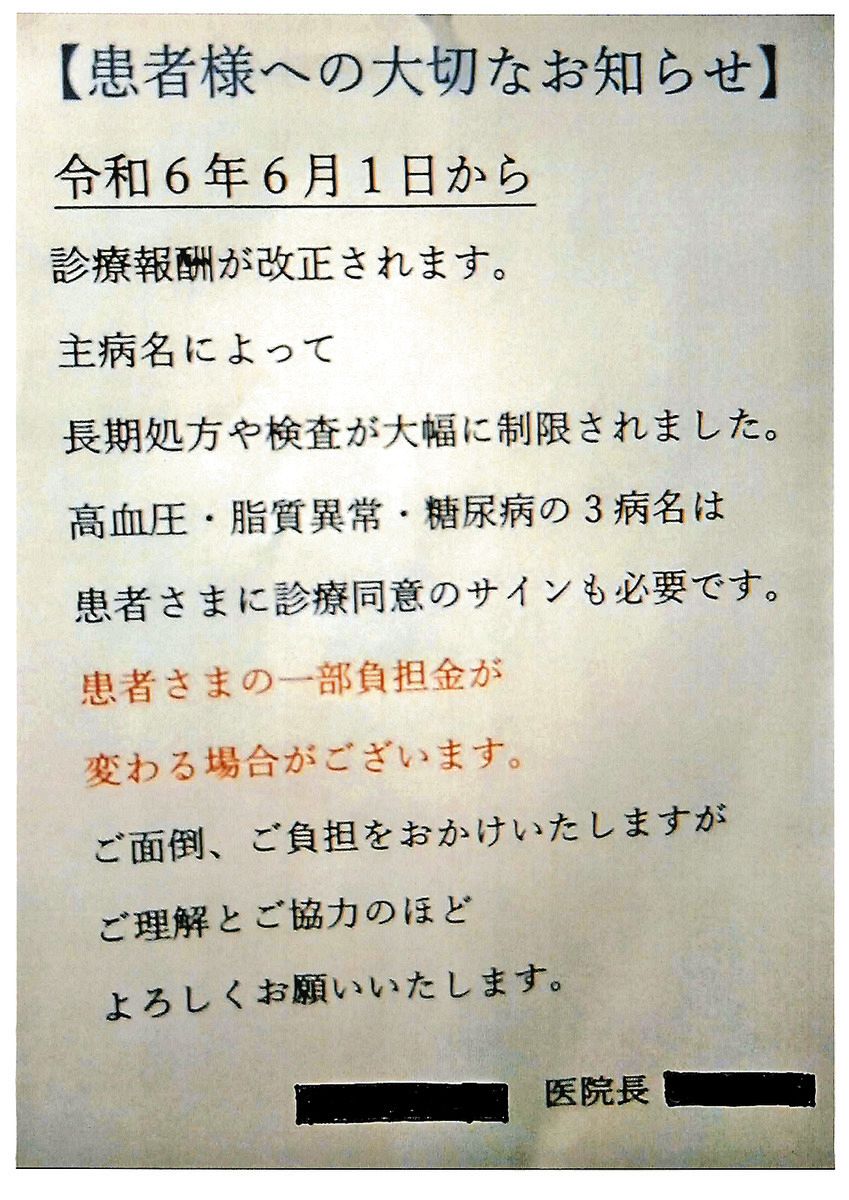 【患者様への大切なお知らせ】
令和6年6月1日から
診療報酬が改正されます。
主病名によって
長期処方や検査が大幅に制限されました。
高血圧・脂質異常・糖尿病の3病名は
患者さまに診療同意のサインも必要です。
患者さまの一部負担金が
変わる場合がございます。
ご面倒、ご負担をおかけいたしますが
ご理解とご協力のほど
よろしくお願いいたします。
医院長